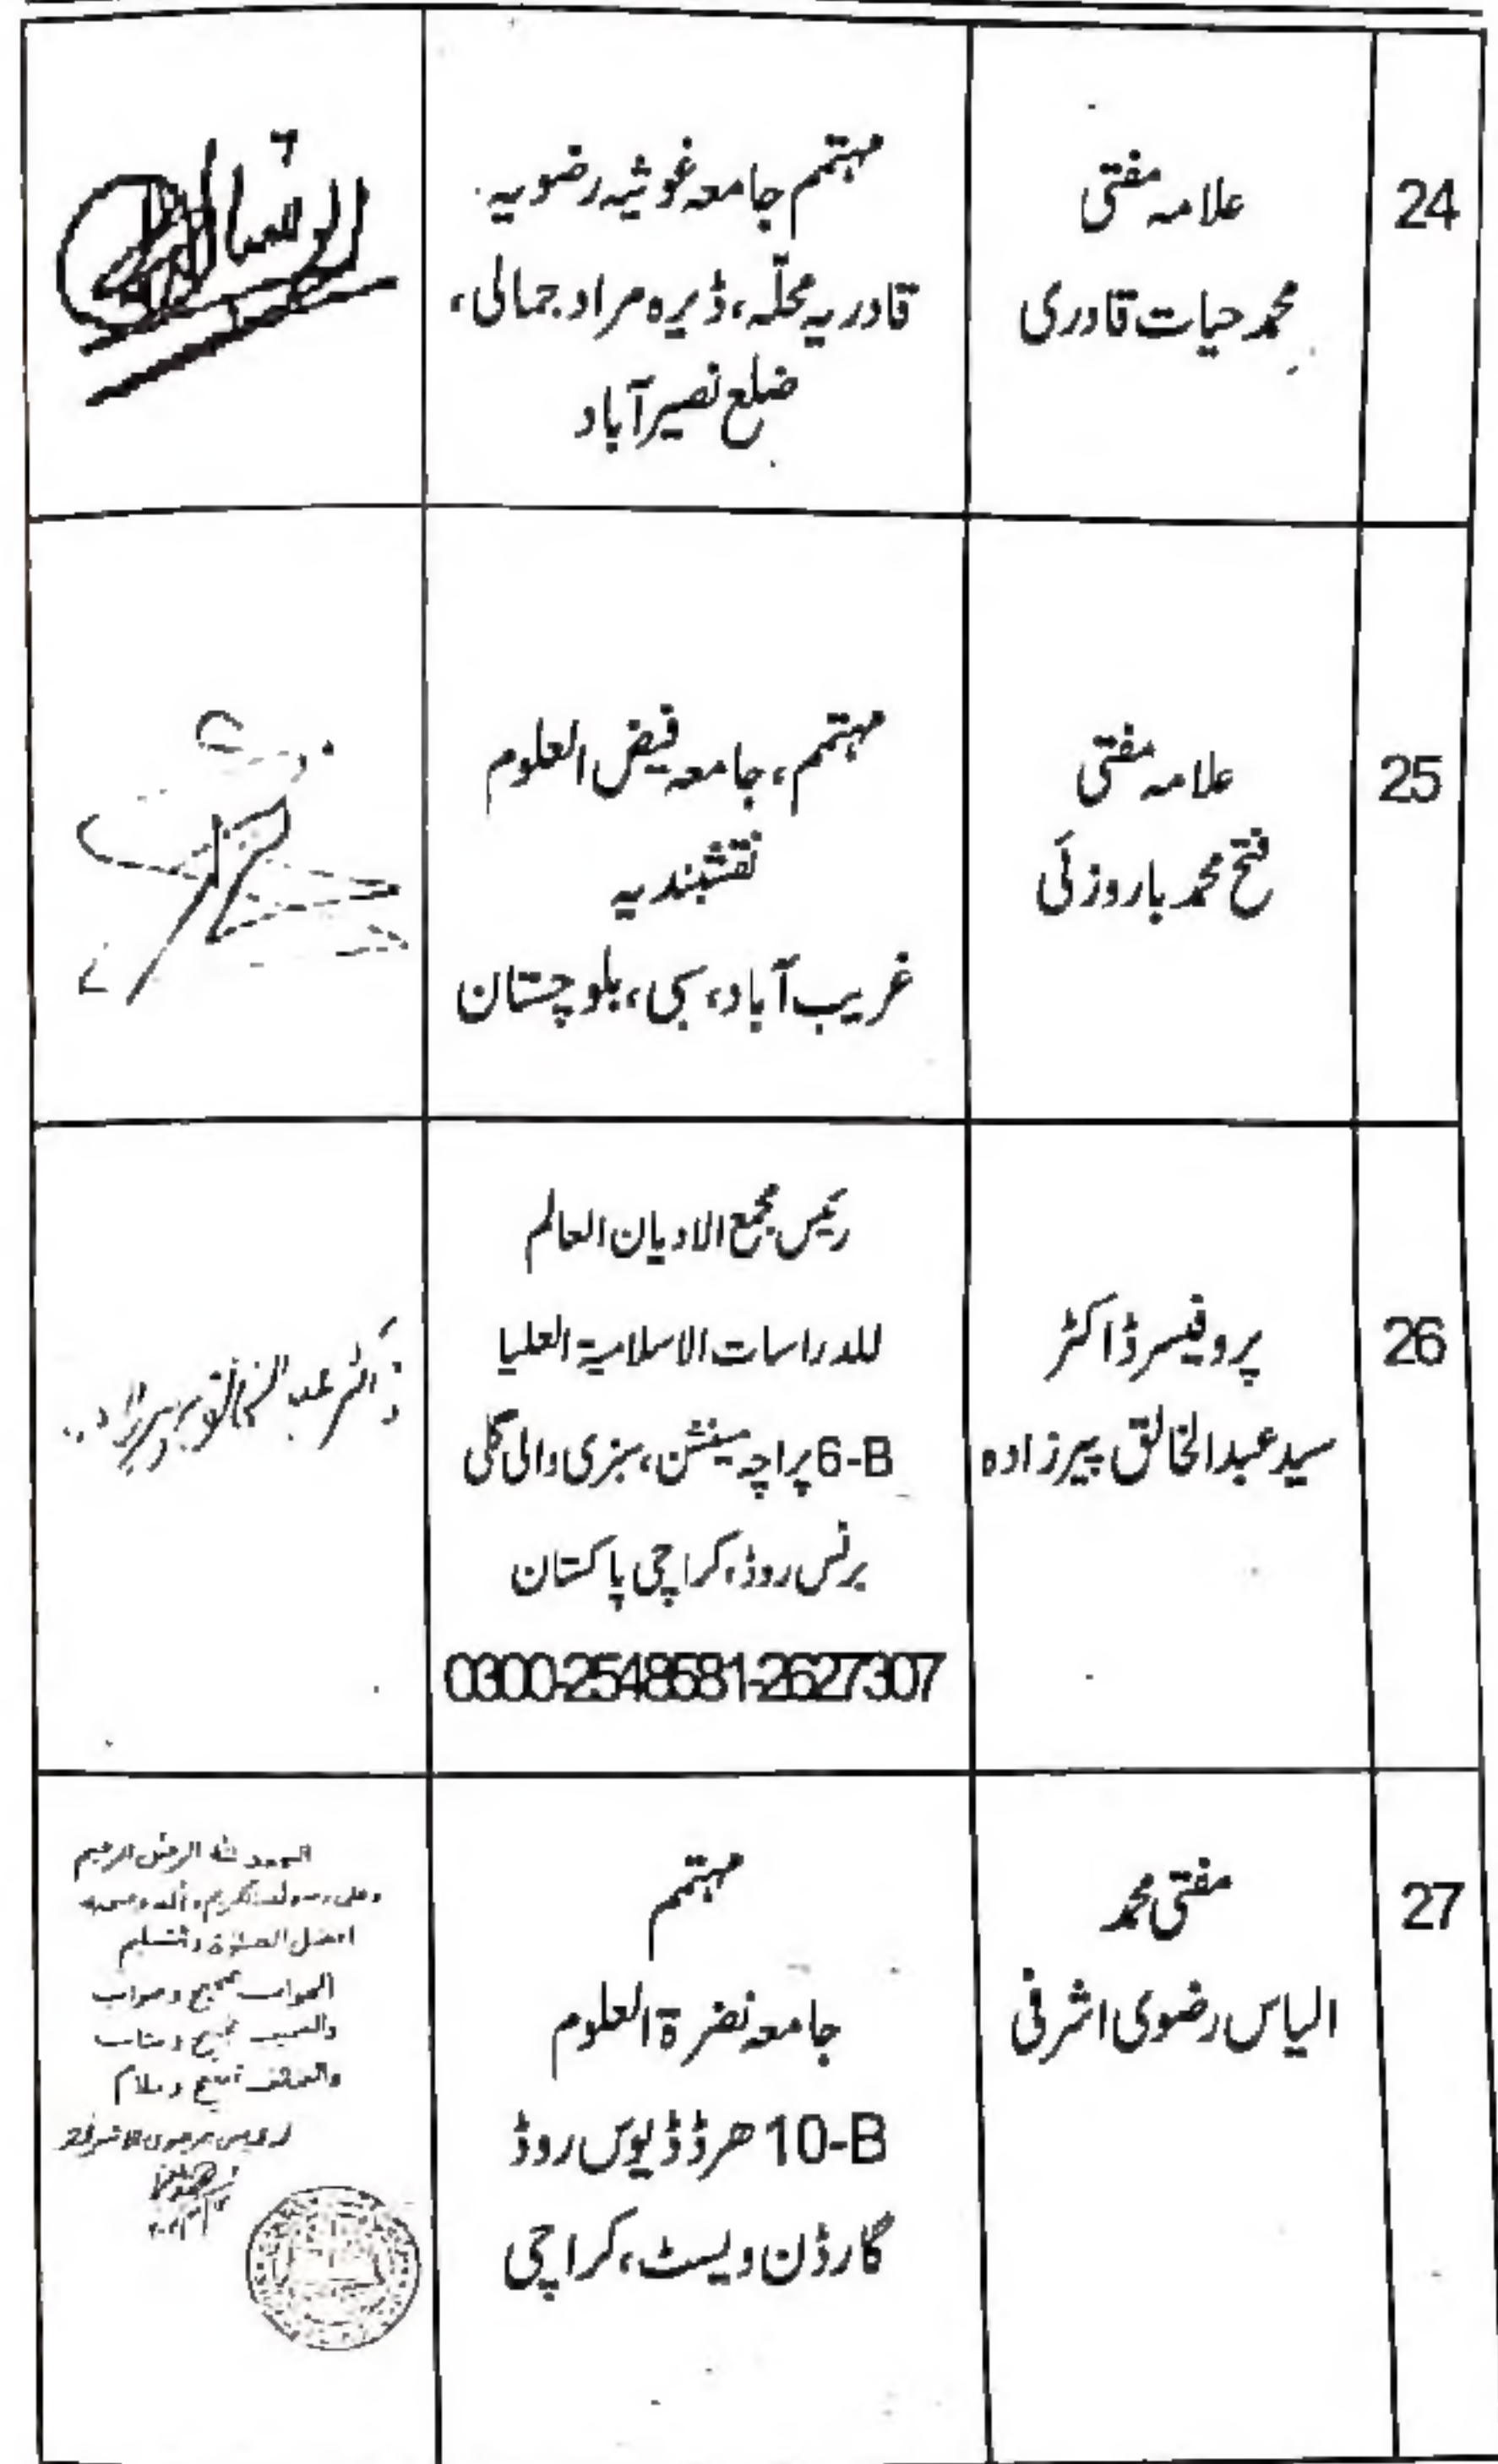 24
علامہ مفتی
محمد حیات قادری
مہتمم جامعہ غوثیہ رضویہ
قادریہ محلّہ، ڈیرہ مراد جمالی،
ضلع نصیر آباد
25
علامہ مفتی
فتح محمد باروزئی
مہتمم، جامعہ فیض العلوم
نقشبندیہ
غریب آباد، سبی، بلوچستان
26
پروفیسر ڈاکٹر
سید عبدالخالق پیرزادہ
رئیس مجمع الادیان العالم
للدراسات الاسلامیۃ العلیا
6-B پراچہ مینشن، سبزی والی گلی
برنس روڈ، کراچی پاکستان
0300-2548581-2627307
ڈاکٹر عبدالخالق پیرزادہ
27
مفتی محمد
الیاس رضوی اشرفی
مہتمم
جامعہ نضرۃ العلوم
10-B ھرڈ ڈیوس روڈ
گارڈن ویسٹ، کراچی
الرحمن الرحیم
افضل الصلوۃ والتسلیم
الجواب صحیح وصواب